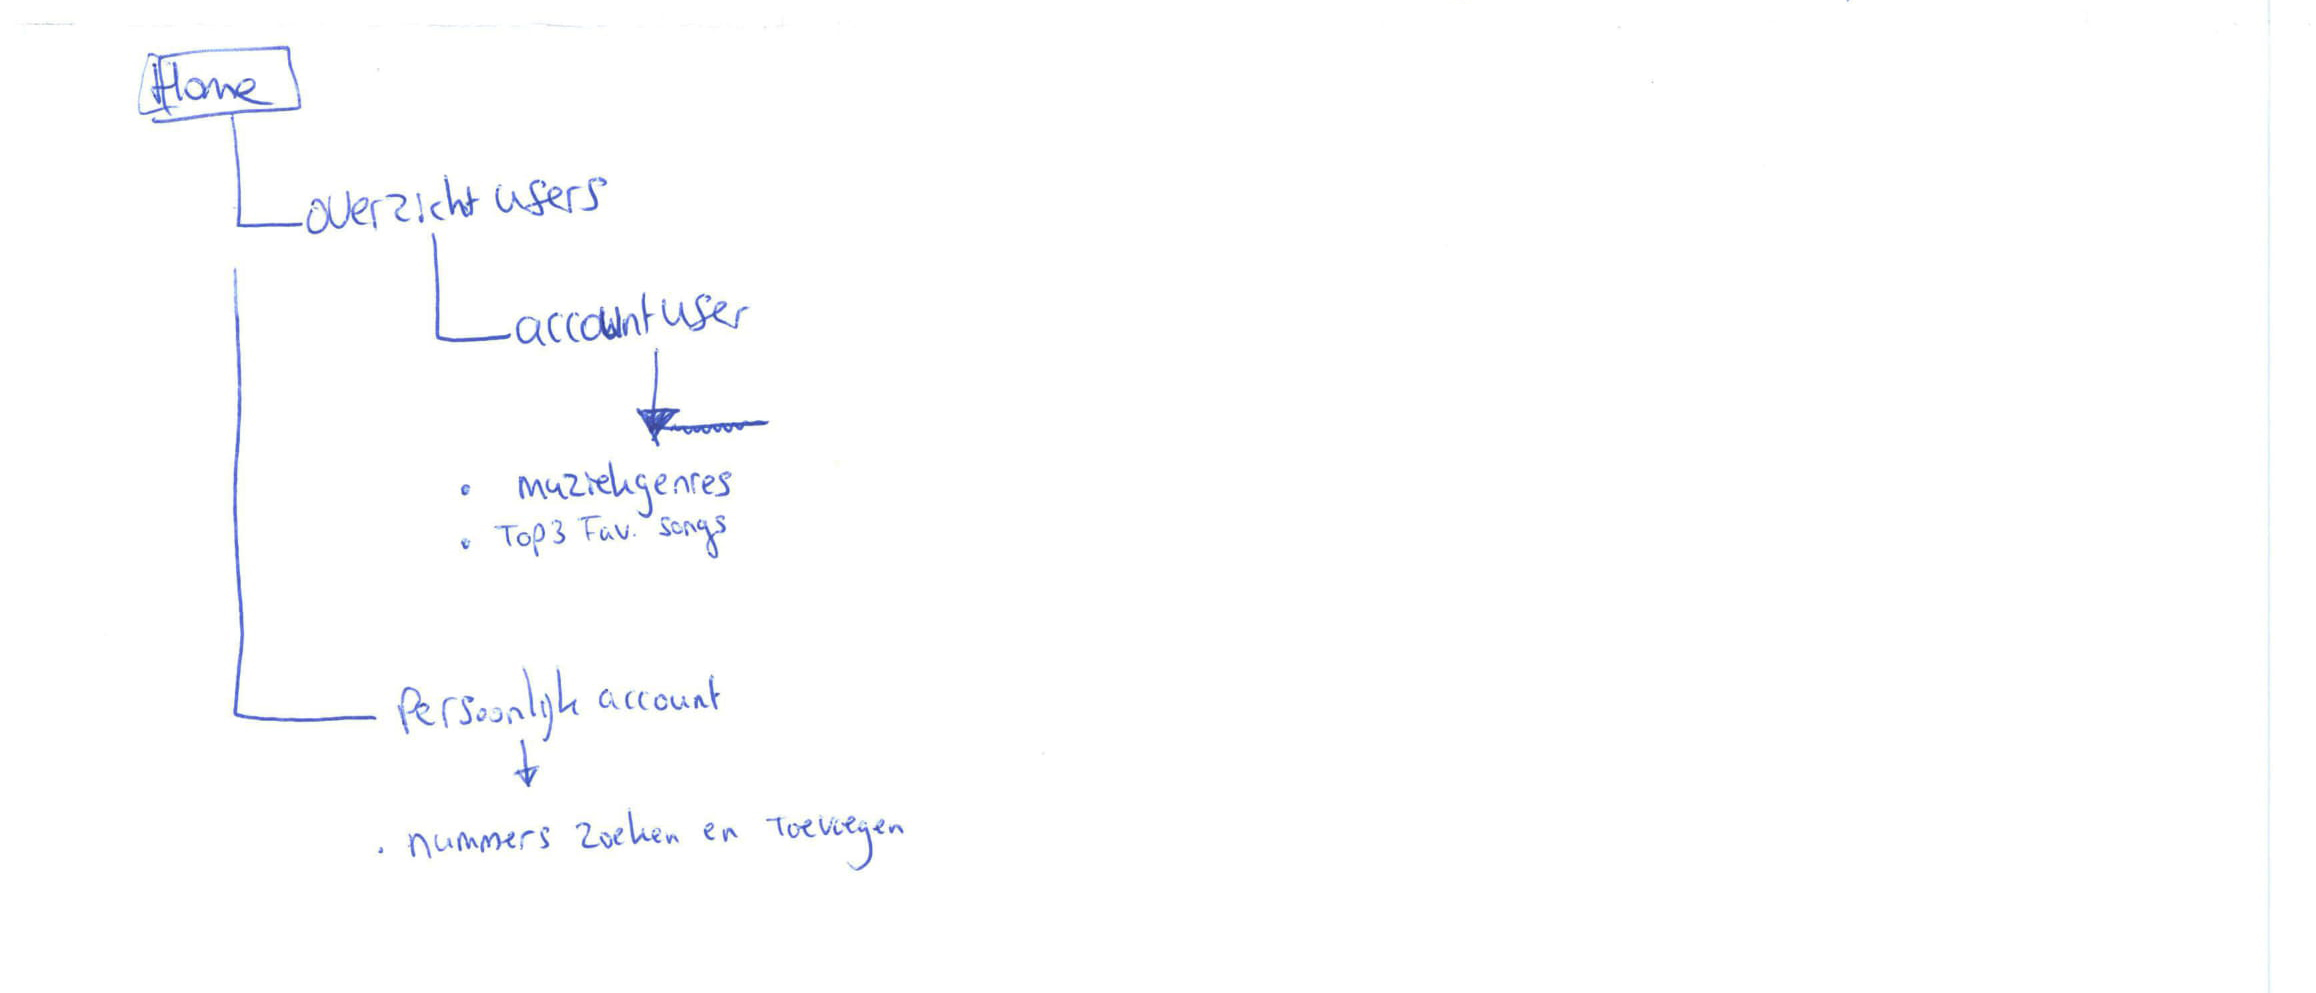 Home
overzicht users
account user
• muziekgenres
• Top3 Fav. songs
Persoonlijk account
• nummers zoeken en toevoegen